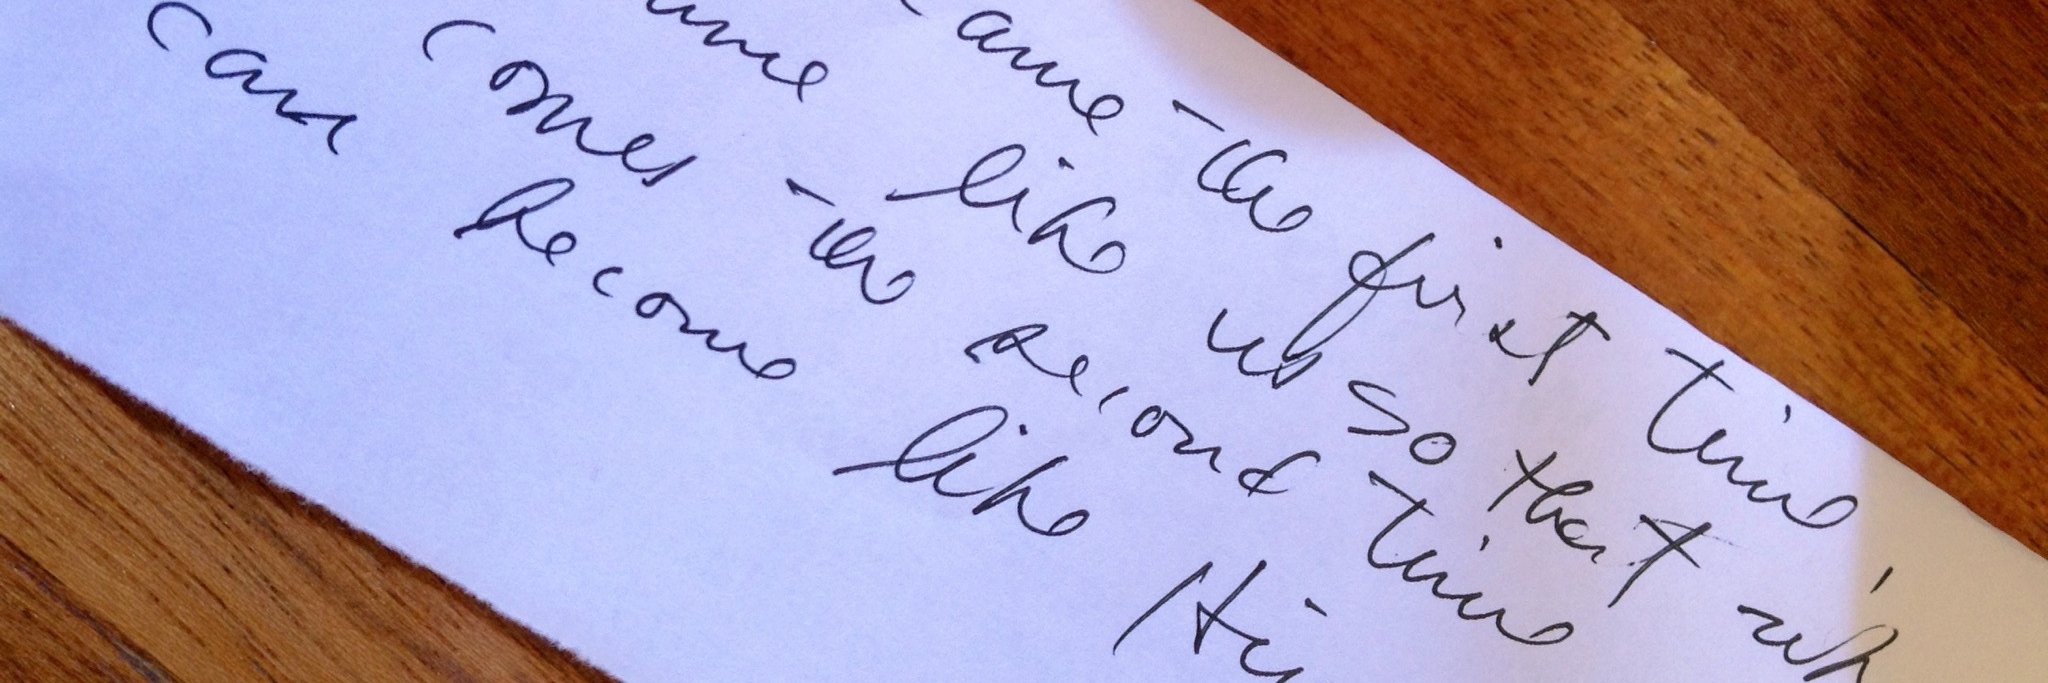 came the first time
like us so that wh
comes the second time
can become like Hi